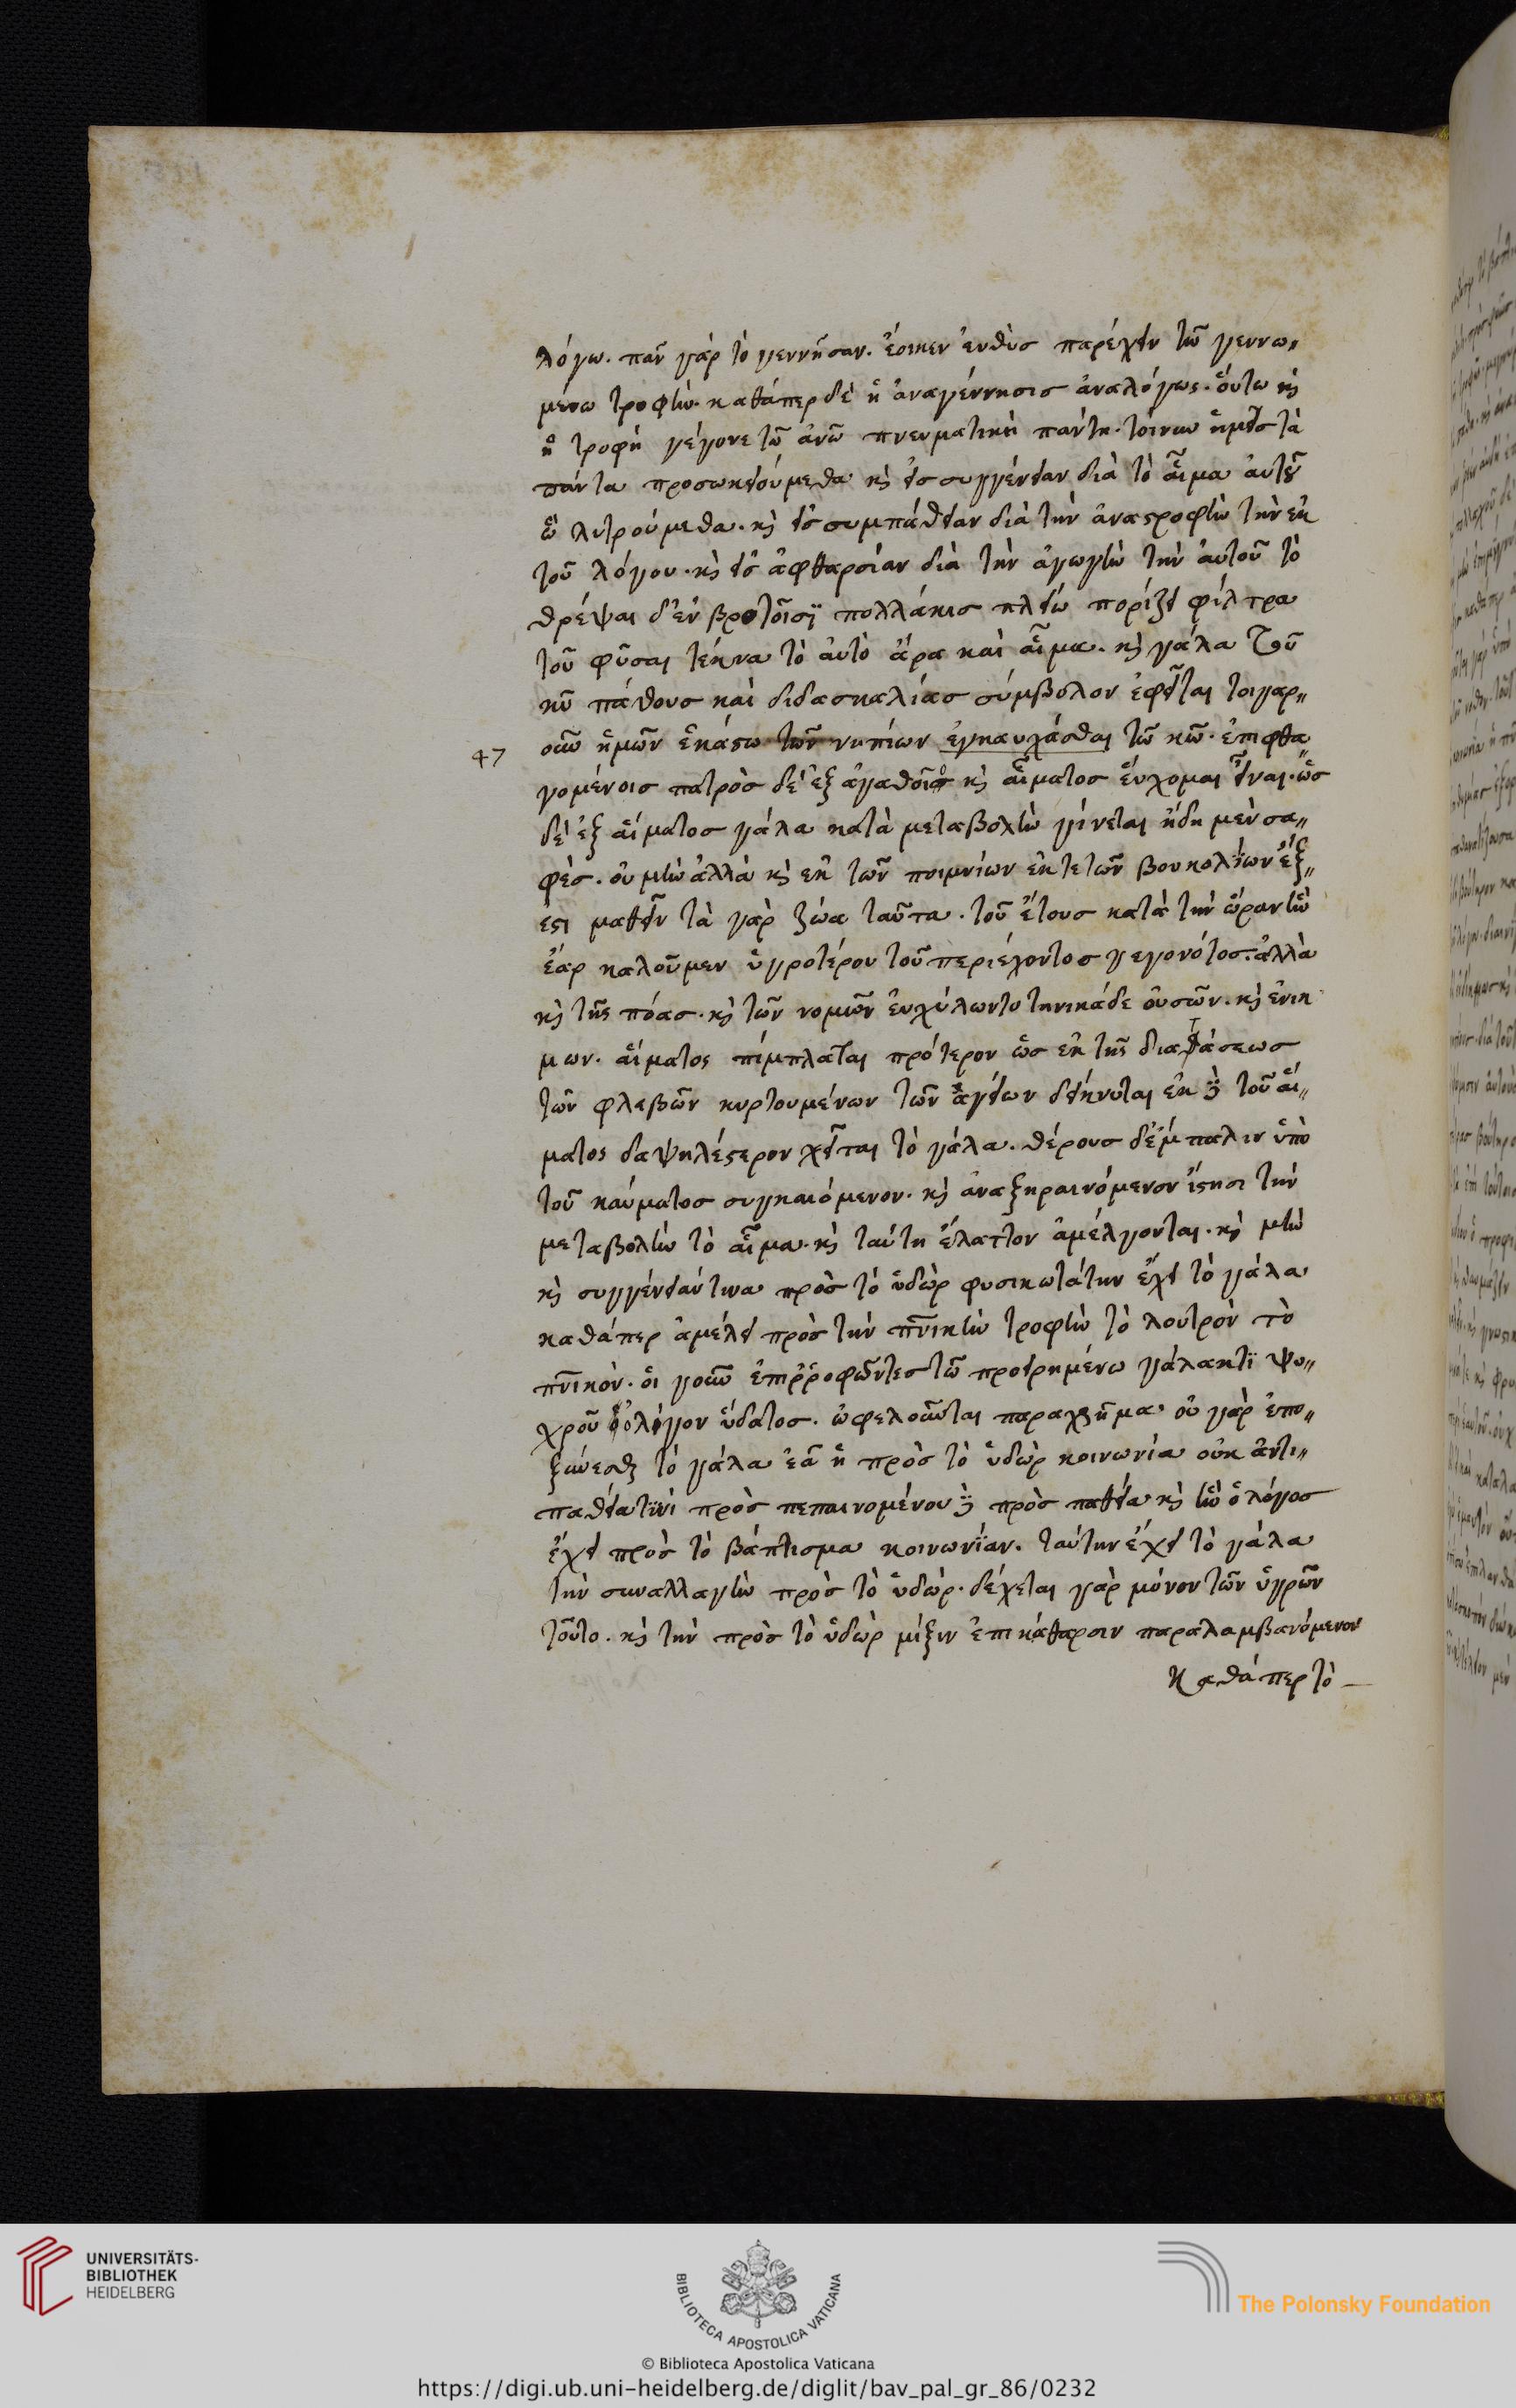 λόγω. πᾶν γὰρ τὸ γεννῆσαν. ἔοικεν ἐυθὺσ παρέχειν τῶ γεννω„
μένω τροφὴν. καθάπερ δὲ ἡ ἀναγέννησις ἀναλόγως. ὅυτω κὶ
ἡ τροφὴ γέγονε τῶ ἀνῶ πνευματικὴ πάντη. τοίνυν ἡμεῖσ τὰ
πάντα προσωκειούμεθα κὶ εἰσ συγγένειαν διὰ τὸ αἷμα ἀυτοῦ
ὧ λυτρούμεθα. κὶ εἰσ συμπάθειαν διὰ τὴν ἀναστροφὴν τὴν ἐκ
τοῦ λόγου. κὶ εἰσ ἀφθαρσίαν διὰ τὴν ἀγωγὴν τὴν ἀυτοῦ τὸ
θρέψαι δ' ἐν βροτοῖσϊ πολλάκισ πλείω πορίζει φίλτρα
τοῦ φῦσαι τέκνα τὸ ἀυτὸ ἄρα καὶ αἷμα. κὶ γάλα τοῦ
κῦ πάθουσ καὶ διδασκαλίασ σύμβολον ἐφεῖται τοιγαρ„
οῦν ἡμῶν ἑκάστω τῶν νηπίων ἐγκαυχάσθαι τῶ κῶ. ἐπιφθε„
47
γομένοισ πατρὸσ δ' ἐξ ἀγαθοῖο κὶ αἵματοσ ἔυχομαι εἶναι. ὡσ
δὲ ἐξ αἵματοσ γάλα κατὰ μεταβολὴν γίνεται ἤδη μὲν σα„
φὲσ. ὀυ μὴν ἀλλὰ κὶ ἐκ τῶν ποιμνίων ἐκ τε τῶν βουκολίων ἔξ„
εστι μαθεῖν τὰ γὰρ ζῶα ταῦτα. τοῦ ἔτους κατὰ τὴν ὥραν ἣν
ἔαρ καλοῦμεν ὑγροτέρου τοῦ περιέχοντοσ γεγονότοσ. ἀλλὰ
κὶ τῆς πόασ. κὶ τῶν νομῶν ἐυχύλων τοτηνικάδε ὀυσῶν. κὶ ἐνικ
μων. αἵματος πίμπλαται πρότερον ὡσ ἐκ τῆς διατάσεωσ
τῶν φλεβῶν κυρτουμένων τῶν ἀγγείων δείκνυται ἐκ δὲ τοῦ αἵ„
ματος δαψηλέστερον χεῖται τὸ γάλα. θέρουσ δ' ἔμπαλιν ὑπὸ
τοῦ καύματοσ συγκαιόμενον. κὶ ἀναξηραινόμενον ἵστησι τὴν
μεταβολὴν τὸ αἷμα. κὶ ταύτη ἔλαττον ἀμέλγονται. κὶ μὴν
κὶ συγγένειάν τινα πρὸσ τὸ ὕδωρ φυσικωτάτην ἔχει τὸ γάλα
καθάπερ ἀμέλει πρὸσ τὴν πν̅ικὴν τροφὴν τὸ λουτρὸν τὸ
πν̅ικὸν. ὁι γοῦν ἐπιῤῥοφῶντεσ τῶ προειρημένω γάλακτϊ ψυ„
χροῦ ὀλίγον ὕδατοσ. ὠφελοῦνται παραχρῆμα ὀυ γὰρ ἀπο„
ξύνεσθαι τὸ γάλα ἐᾶ ἡ πρὸσ τὸ ὕδωρ κοινωνία ὀυκ ἀντι„
παθεία τινὶ πρὸσ πεπαινομένου δὲ πρὸσ παθεία κὶ ἣν ὁ λόγοσ
ἔχει πρὸσ τὸ βάπτισμα κοινωνίαν. ταύτην ἔχει τὸ γάλα
τὴν συναλλαγὴν πρὸσ τὸ ὕδωρ. δέχεται γὰρ μόνον τῶν ὑγρῶν
τοῦτο. κὶ τὴν πρὸσ τὸ ὕδωρ μίξιν ἐπι κάθαρσιν παραλαμβανόμενον
καθάπερ τὸ
UNIVERSITÄTS-
BIBLIOTHEK
HEIDELBERG
BIBLIOTECA APOSTOLICA VATICANA
The Polonsky Foundation
© Biblioteca Apostolica Vaticana
https://digi.ub.uni-heidelberg.de/diglit/bav_pal_gr_86/0232